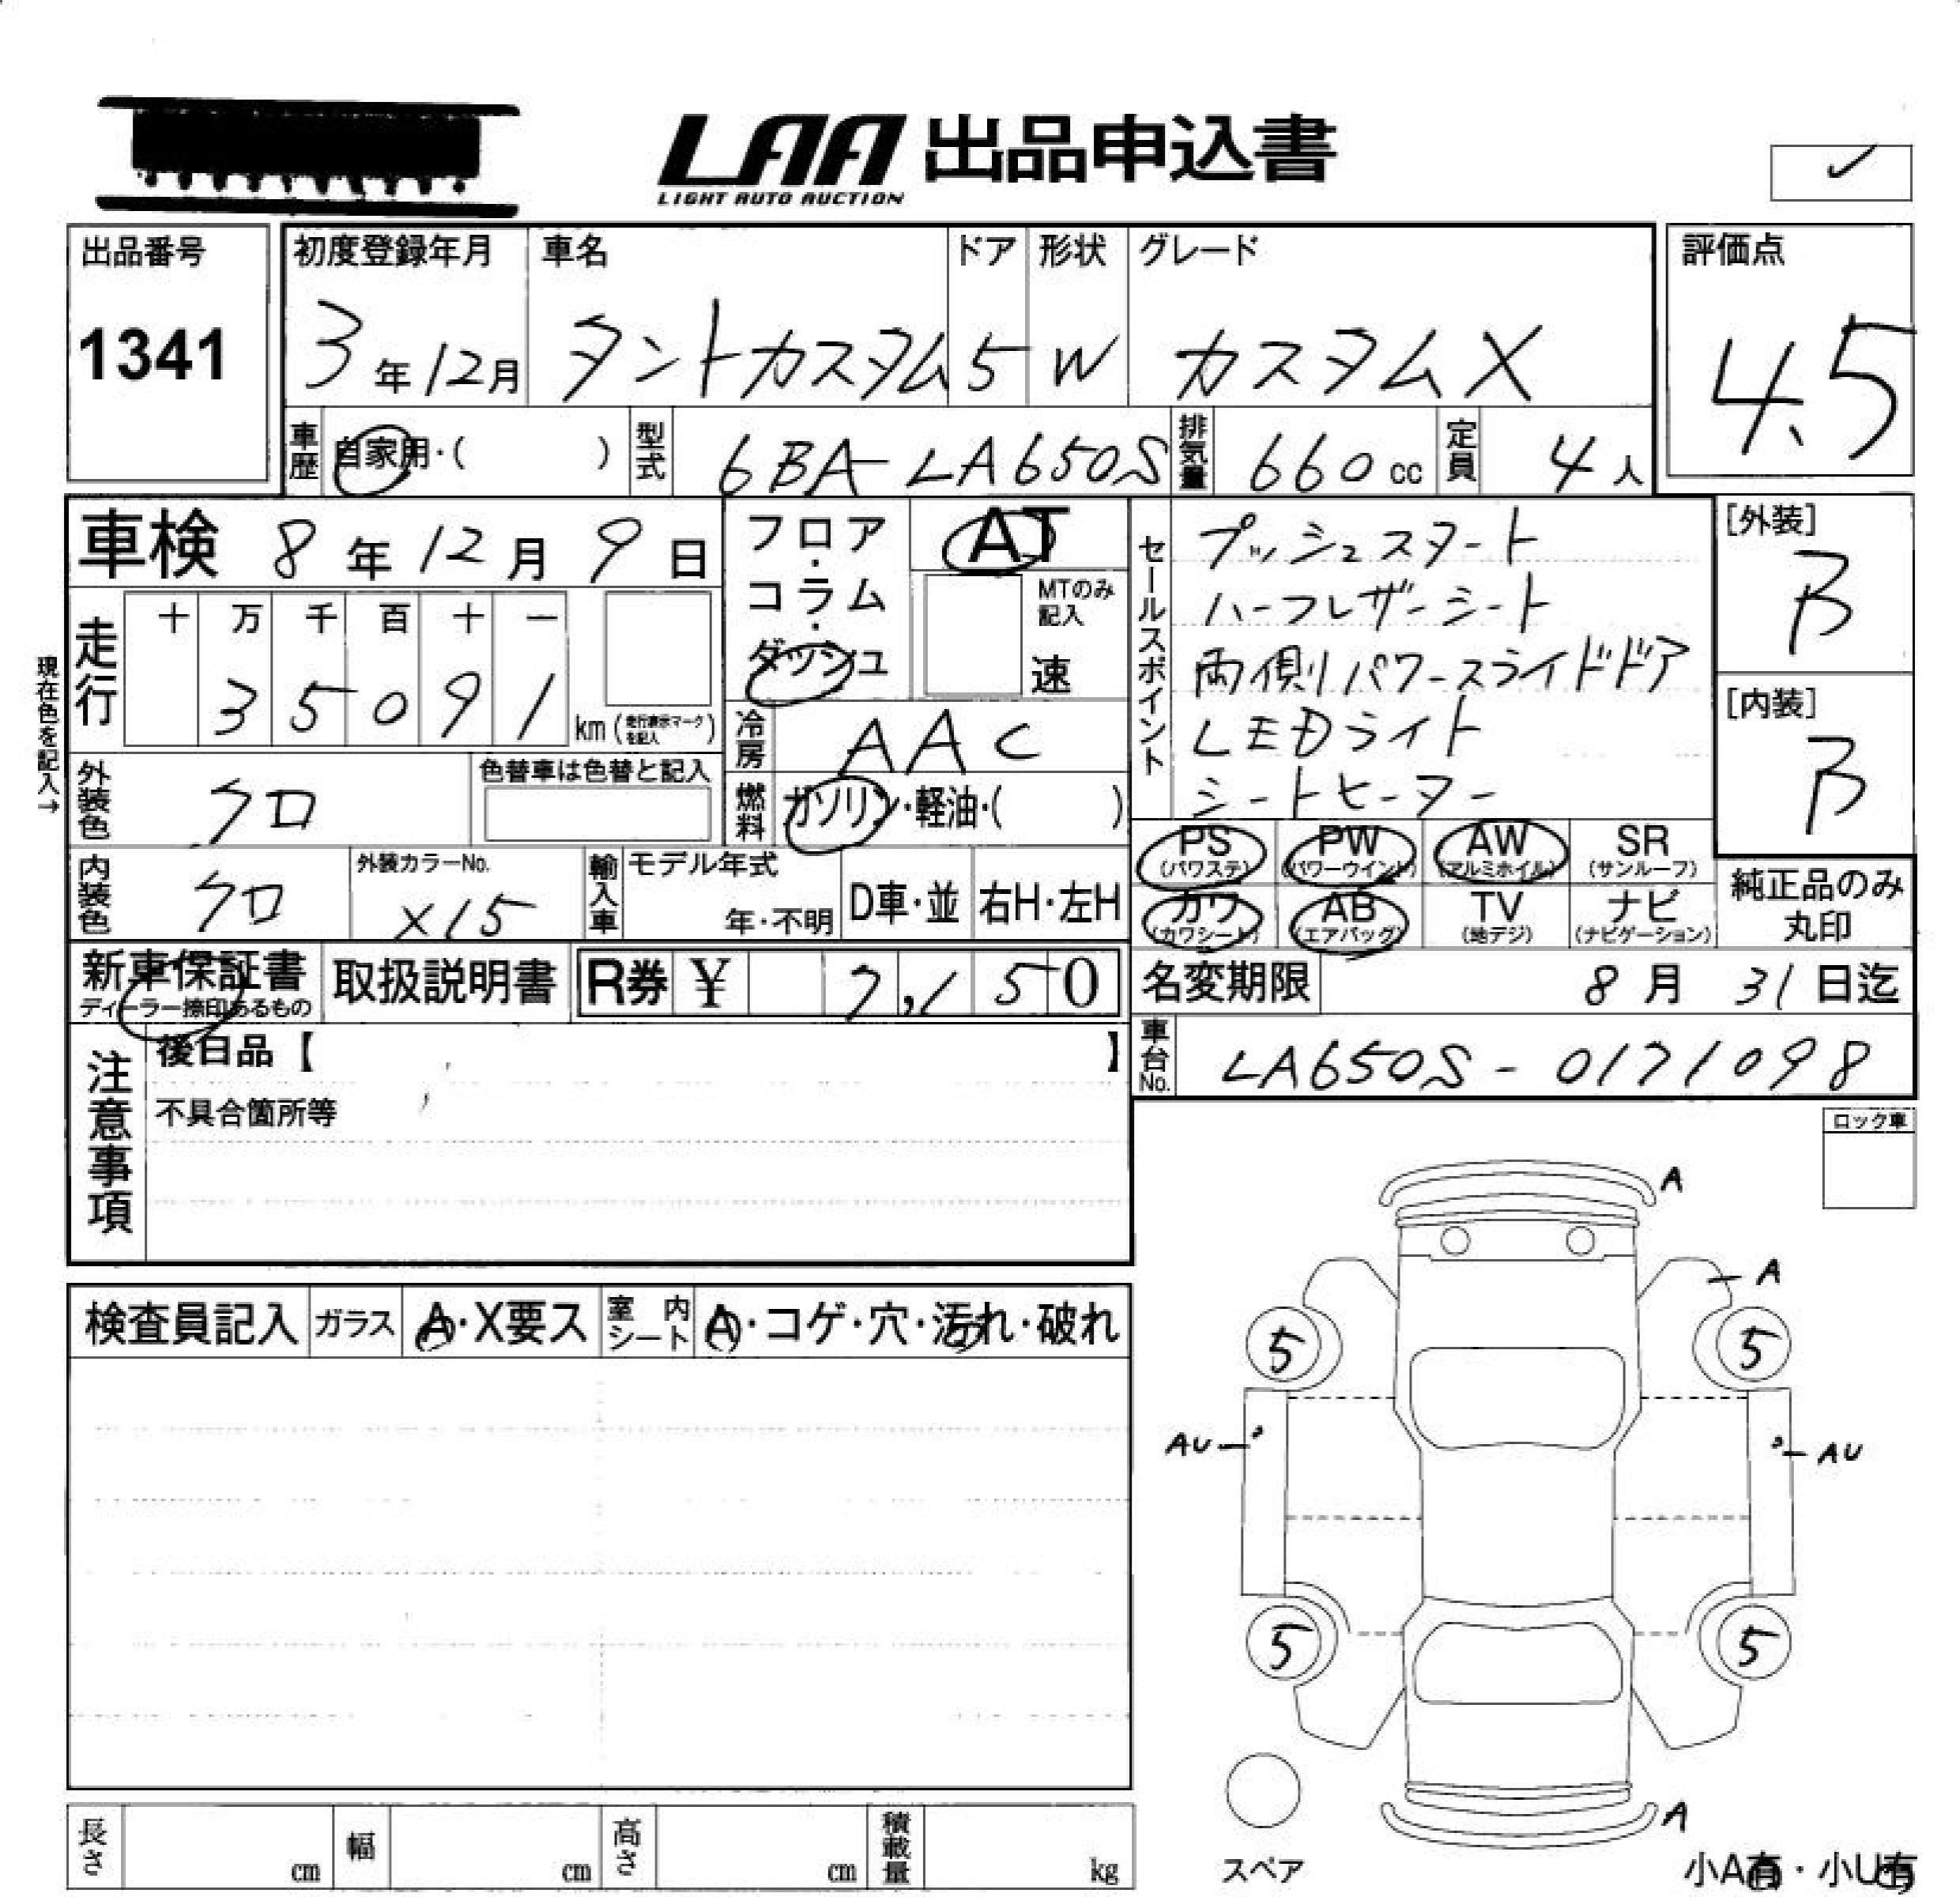 LAA 出品申込書
LIGHT AUTO AUCTION
出品番号
1341
初度登録年月
3年12月
車名
タントカスタム
ドア
5
形状
W
グレード
カスタムX
評価点
4.5
車歴
自家用・( )
型式
6BA-LA650S
排気量
660cc
定員
4人
車検 8年12月9日
フロア・コラム・ダッシュ
AT
MTのみ記入
速
セールスポイント
プッシュスタート
ハーフレザーシート
両側パワースライドドア
LEDライト
シートヒーター
[外装]
B
[内装]
B
現在色を記入→
走行
十 万 千 百 十 一
3 5 0 9 1
km(走行表示マークを記入)
冷房
AAC
燃料
ガソリン・軽油・( )
外装色
クロ
色替車は色替と記入
内装色
クロ
外装カラーNo.
X15
輸入車
モデル年式
年・不明
D車・並
右H・左H
PS
(パワステ)
PW
(パワーウインド)
AW
(アルミホイル)
SR
(サンルーフ)
カワ
(カワシート)
AB
(エアバッグ)
TV
(地デジ)
ナビ
(ナビゲーション)
純正品のみ丸印
新車保証書
ディーラー捺印あるもの
取扱説明書
R券 ¥ 7,150
名変期限
8月31日迄
車台No.
LA650S-0171098
注意事項
後日品【 】
不具合箇所等
ロック車
検査員記入
ガラス
A・X要ス
室内シート
A・コゲ・穴・汚れ・破れ
A
A
5
5
AU
AU
5
5
A
スペア
小A有・小U有
長さ
cm
幅
cm
高さ
cm
積載量
kg